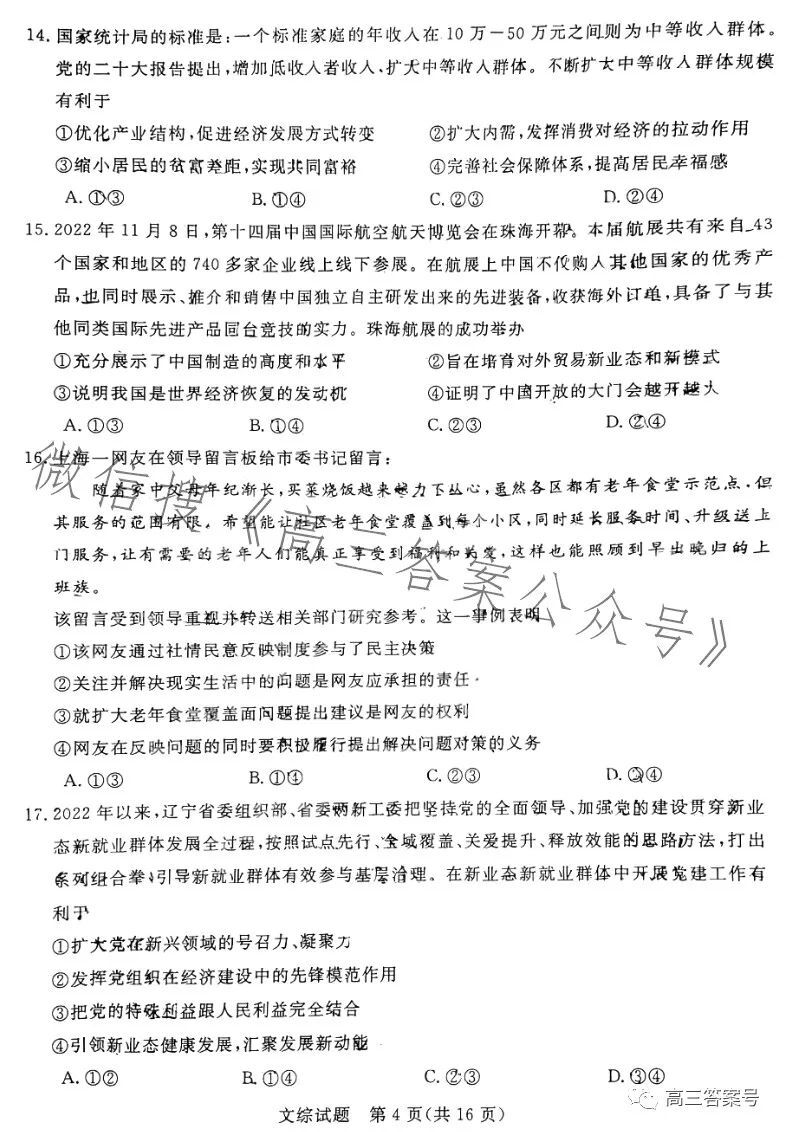 14. 国家统计局的标准是:一个标准家庭的年收入在 10 万－50 万元之间则为中等收入群体。
党的二十大报告提出,增加低收入者收入、扩大中等收入群体。不断扩大中等收入群体规模
有利于
①优化产业结构,促进经济发展方式转变 ②扩大内需,发挥消费对经济的拉动作用
③缩小居民的贫富差距,实现共同富裕 ④完善社会保障体系,提高居民幸福感
A. ①③ B. ①④ C. ②③ D. ②④
15. 2022 年 11 月 8 日,第十四届中国国际航空航天博览会在珠海开幕。本届航展共有来自 43
个国家和地区的 740 多家企业线上线下参展。在航展上中国不仅购入其他国家的优秀产
品,也同时展示、推介和销售中国独立自主研发出来的先进装备,收获海外订单,具备了与其
他同类国际先进产品同台竞技的实力。珠海航展的成功举办
①充分展示了中国制造的高度和水平 ②旨在培育对外贸易新业态和新模式
③说明我国是世界经济恢复的发动机 ④证明了中国开放的大门会越开越大
A. ①③ B. ①④ C. ②③ D. ②④
16. 上海一网友在领导留言板给市委书记留言:
随着家中父母年纪渐长,买菜烧饭越来越力不从心,虽然各区都有老年食堂示范点,但
其服务的范围有限。希望能让社区老年食堂覆盖到每个小区,同时延长服务时间、升级送上
门服务,让有需要的老年人们能真正享受到福利和关爱,这样也能照顾到早出晚归的上
班族。
该留言受到领导重视并转送相关部门研究参考。这一事例表明
①该网友通过社情民意反映制度参与了民主决策
②关注并解决现实生活中的问题是网友应承担的责任
③就扩大老年食堂覆盖面问题提出建议是网友的权利
④网友在反映问题的同时要积极履行提出解决问题对策的义务
A. ①③ B. ①④ C. ②③ D. ②④
17. 2022 年以来,辽宁省委组织部、省委两新工委把坚持党的全面领导、加强党的建设贯穿新业
态新就业群体发展全过程,按照试点先行、全域覆盖、关爱提升、释放效能的思路方法,打出
系列组合拳,引导新就业群体有效参与基层治理。在新业态新就业群体中开展党建工作有
利于
①扩大党在新兴领域的号召力、凝聚力
②发挥党组织在经济建设中的先锋模范作用
③把党的特殊利益跟人民利益完全结合
④引领新业态健康发展,汇聚发展新动能
A. ①② B. ①④ C. ②③ D. ③④
文综试题 第 4 页(共 16 页)
微信搜《高三答案公众号》
高三答案号